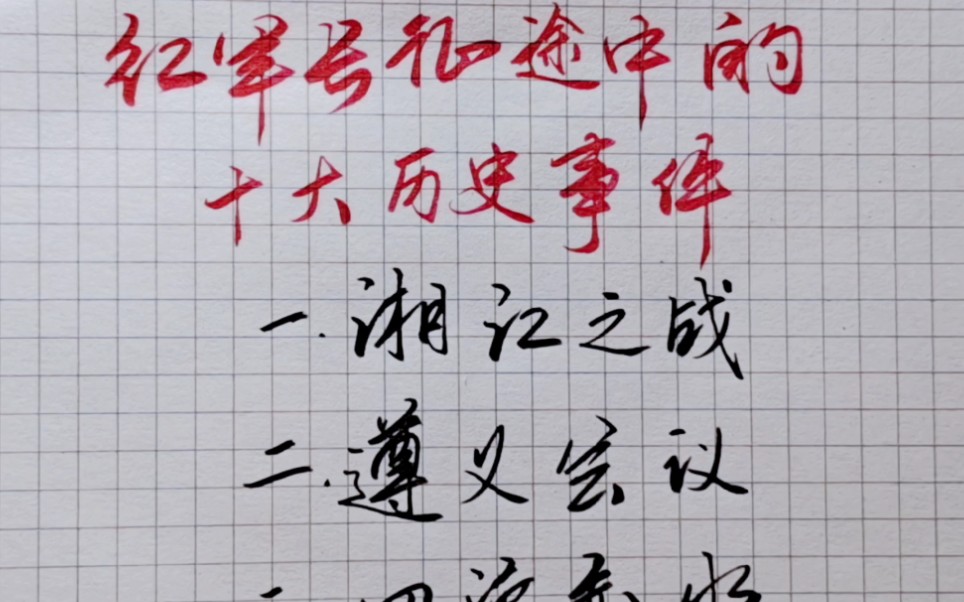 红军长征途中的
十大历史事件
一.湘江之战
二.遵义会议
三.四渡赤水